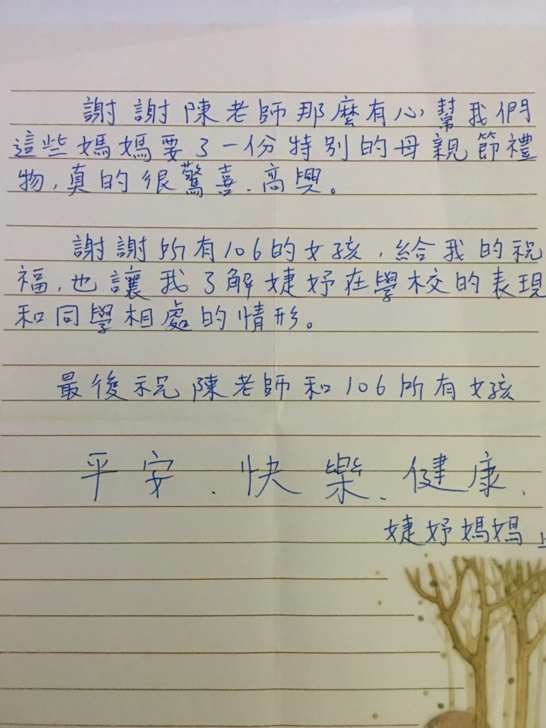 謝謝陳老師那麼有心幫我們
這些媽媽要了一份特別的母親節禮
物,真的很驚喜、高興。
謝謝所有106的女孩,給我的祝
福,也讓我了解婕妤在學校的表現
和同學相處的情形。
最後祝陳老師和106所有女孩
平安、快樂、健康、
婕妤媽媽